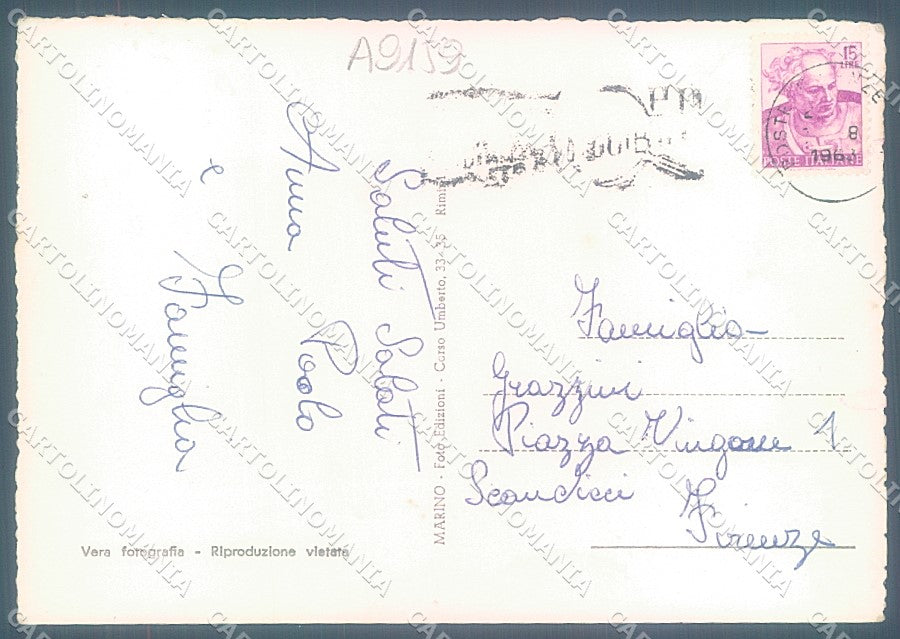 A9159
15
LIRE
POSTE ITALIANE
POSTA
8
Saluti Salati
Anna Paolo
e Famiglia
Famiglia
Grazzini
Piazza Vingone 1
Scandicci Firenze
MARINO - Foto Edizioni - Corso Umberto, 33
Vera fotografia - Riproduzione vietata
CARTOLINOMANIA